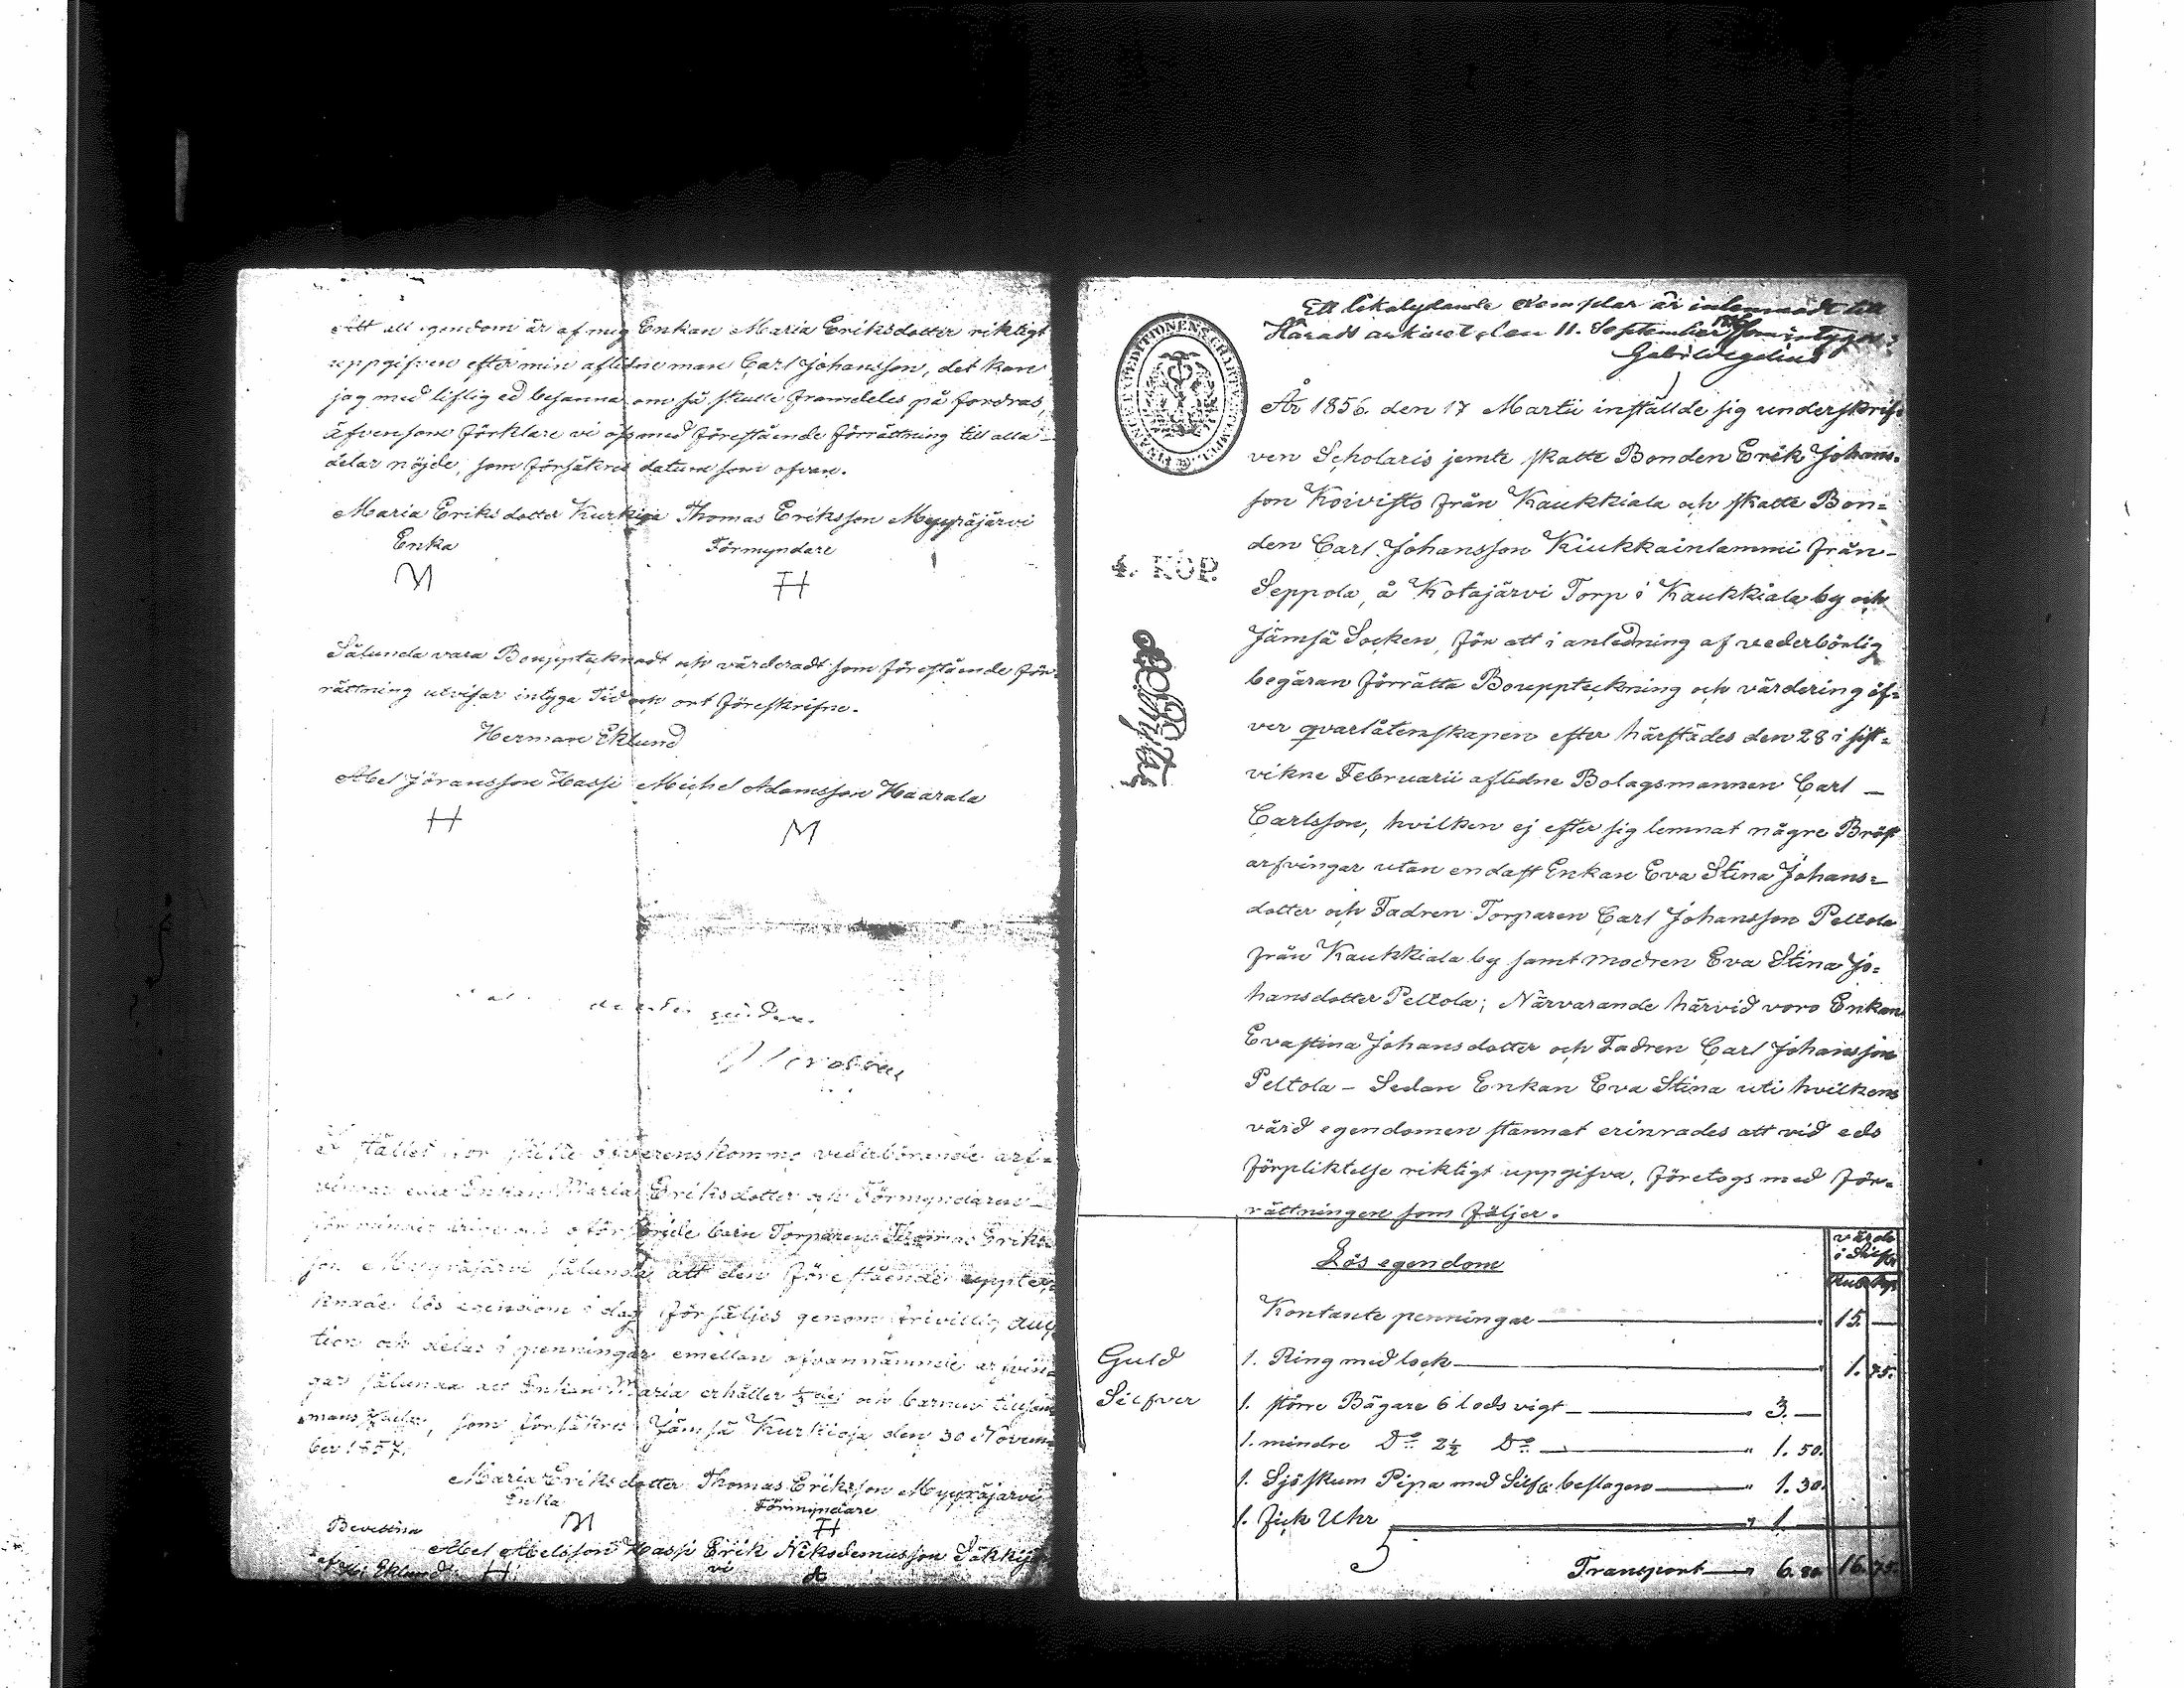 Att all egendom är af mig Enkan Maria Eriksdotter riktigt
uppgifven efter min aflidne man Carl Johansson, det kan
jag med liflig ed besanna om så skulle framdeles på fordras,
äfvensom förklare vi oss med förestående förrättning till alla
delar nöjde, som försäkres datum som ofvan.
Maria Eriksdotter Kurkioja Thomas Eriksson Myyräjärvi
Enka Förmyndare
M H
Sålunda vara Bouppteknadt och värderadt som förestående för-
rättning utvisar intyga Tid och ort föreskrifne.
Herman Eklund
Abel Jöransson Hassi Michel Adamsson Haarala
H M
I stället för skifte öfverenskommo vederbörande arf-
vingar Enkan Maria Eriksdotter och Förmyndaren
barn Torparen Thomas Eriks-
son Myyräjärvi sålunda att den förestående uppteck-
nade lös egendom i dag försäljes genom frivillig auc-
tion och delas i penningar emellan ofvannämnde arfvin-
gar sålunda att Enkan Maria erhåller och barnen tillsam-
mans, som försäkres Jämsä Kurkioja den 30 Novem-
ber 1857.
Maria Eriksdotter Thomas Eriksson Myyräjärvi
Enka Förmyndare
M H
Bevittna
Abel Abelsson Hassi Erik Nikodemusson
af H: Eklund H
Ett likalydande exemplar är inlemnadt till
Härads arkivet den 11. September som intygar:
Gab: Wegelius
År 1856 den 17 Martii inställde sig underskrif-
ven Scholaris jemte skatte Bonden Erik Johans-
son Koivisto från Kaukkiala och skatte Bon-
den Carl Johansson Kiukkainlammi från
Seppola, å Kotajärvi Torp i Kaukkiala by och
Jämsä Socken, för att i anledning af vederbörlig
begäran förrätta Bouppteckning och värdering öf-
ver qvarlåtenskapen efter härstädes den 28 i sist-
vikne Februarii aflidne Bolagsmannen Carl
Carlsson, hvilken ej efter sig lemnat någre Bröst
arfvingar utan endast Enkan Eva Stina Johans-
dotter och Fadren Torparen Carl Johansson Peltola
från Kaukkiala by samt modren Eva Stina Jo-
hansdotter Peltola; Närvarande härvid voro Enkan
Eva stina Johansdotter och Fadren Carl Johansson
Peltola – Sedan Enkan Eva Stina uti hvilkens
vård egendomen stannat erinrades att vid eds
förpliktelse riktigt uppgifva, företogs med för-
rättningen som följer.
4. KOP.
Lös egendom
värde
i Silfr
Rub. kop.
Kontante penningar 15. —
Guld 1. Ring med lock 1. 75.
Silfver 1. större Bägare 6 lods vigt " 3. —
1. mindre Do 2½ Do " 1. 50.
1. Sjöskum Pipa med Silfr. beslagen " 1. 30.
1. Fick Uhr " 1
Transport " 6. 80. 16. 75.